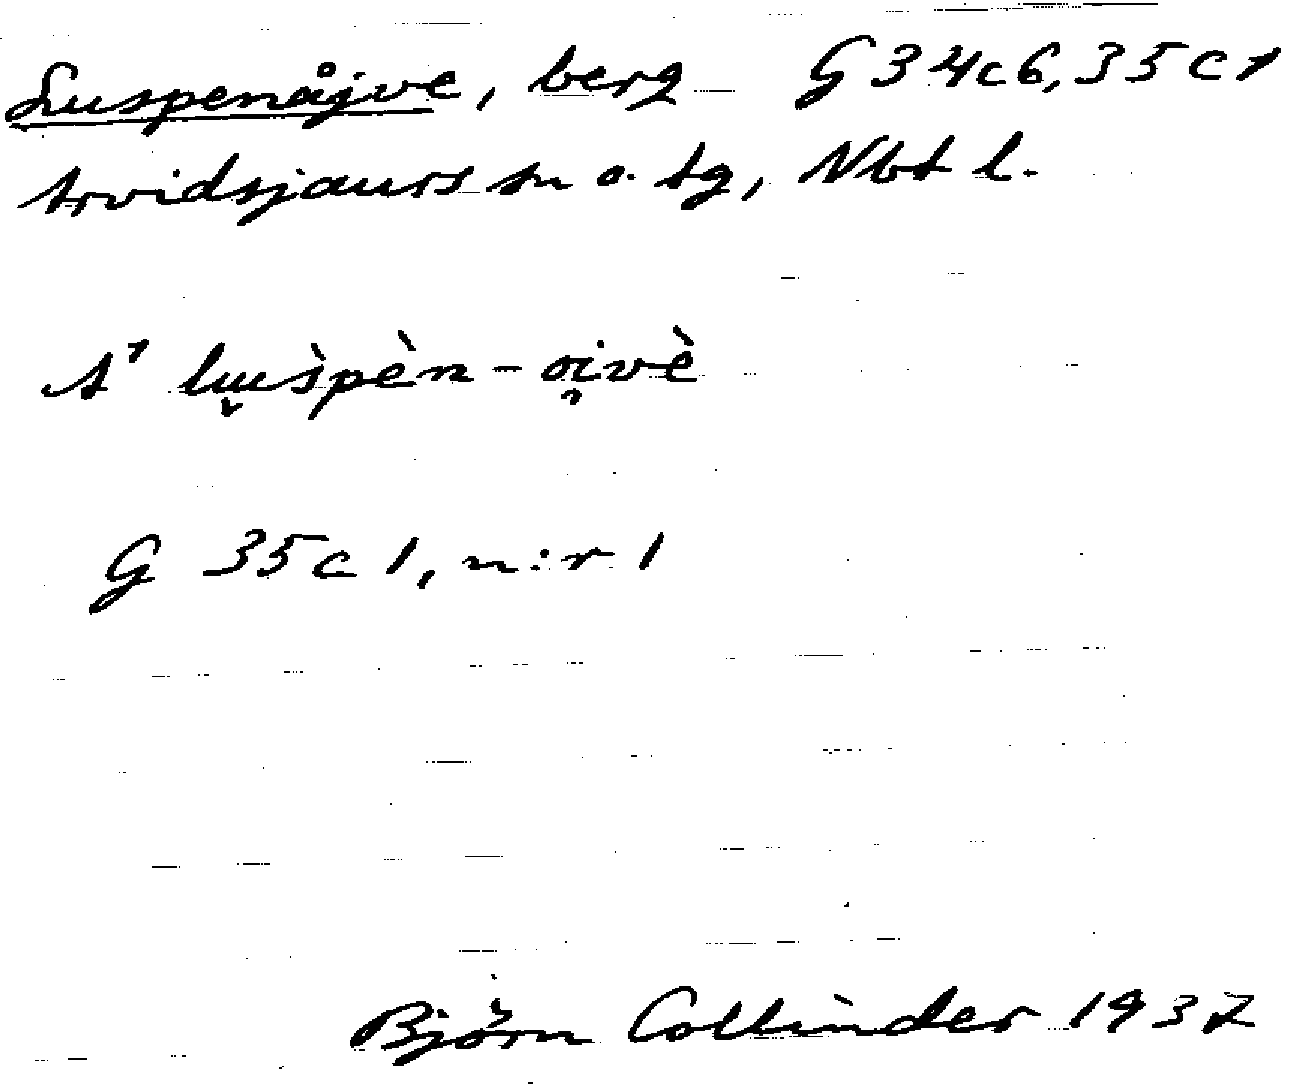 Luspenåjve, berg G 34c6, 35c1
Arvidsjaurs sn o. tg, Nbt l.
A¹ lu̬u̇špèn-o̦i̯vè
G 35c1, n:r 1
Björn Collinder 1937